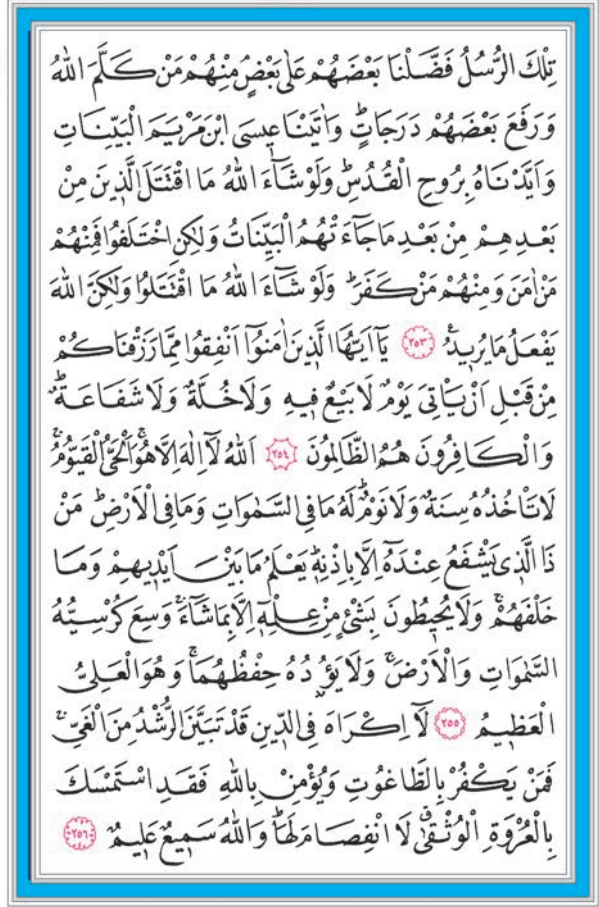 تِلْكَ الرُّسُلُ فَضَّلْنَا بَعْضَهُمْ عَلٰى بَعْضٍۢ مِنْهُمْ مَنْ كَلَّمَ اللّٰهُ
وَرَفَعَ بَعْضَهُمْ دَرَجَاتٍۜ وَاٰتَيْنَا عٖيسَى ابْنَ مَرْيَمَ الْبَيِّنَاتِ
وَاَيَّدْنَاهُ بِرُوحِ الْقُدُسِۜ وَلَوْ شَٓاءَ اللّٰهُ مَا اقْتَتَلَ الَّذٖينَ مِنْ
بَعْدِهِمْ مِنْ بَعْدِ مَا جَٓاءَتْهُمُ الْبَيِّنَاتُ وَلٰكِنِ اخْتَلَفُوا فَمِنْهُمْ
مَنْ اٰمَنَ وَمِنْهُمْ مَنْ كَفَرَۜ وَلَوْ شَٓاءَ اللّٰهُ مَا اقْتَتَلُوا وَلٰكِنَّ اللّٰهَ
يَفْعَلُ مَا يُرٖيدُ۟ ﴿٢٥٣﴾ يَٓا اَيُّهَا الَّذٖينَ اٰمَنُٓوا اَنْفِقُوا مِمَّا رَزَقْنَاكُمْ
مِنْ قَبْلِ اَنْ يَأْتِيَ يَوْمٌ لَا بَيْعٌ فٖيهِ وَلَا خُلَّةٌ وَلَا شَفَاعَةٌۜ
وَالْكَافِرُونَ هُمُ الظَّالِمُونَ ﴿٢٥٤﴾ اَللّٰهُ لَٓا اِلٰهَ اِلَّا هُوَۚ اَلْحَيُّ الْقَيُّومُۚ
لَا تَأْخُذُهُ سِنَةٌ وَلَا نَوْمٌۜ لَهُ مَا فِي السَّمٰوَاتِ وَمَا فِي الْاَرْضِۜ مَنْ
ذَا الَّذٖي يَشْفَعُ عِنْدَهُٓ اِلَّا بِاِذْنِهٖۜ يَعْلَمُ مَا بَيْنَ اَيْدٖيهِمْ وَمَا
خَلْفَهُمْۚ وَلَا يُحٖيطُونَ بِشَيْءٍ مِنْ عِلْمِهٖٓ اِلَّا بِمَا شَٓاءَۚ وَسِعَ كُرْسِيُّهُ
السَّمٰوَاتِ وَالْاَرْضَۚ وَلَا يَؤُ۫دُهُ حِفْظُهُمَاۚ وَهُوَ الْعَلِيُّ
الْعَظٖيمُ ﴿٢٥٥﴾ لَٓا اِكْرَاهَ فِي الدّٖينِ قَدْ تَبَيَّنَ الرُّشْدُ مِنَ الْغَيِّۚ
فَمَنْ يَكْفُرْ بِالطَّاغُوتِ وَيُؤْمِنْ بِاللّٰهِ فَقَدِ اسْتَمْسَكَ
بِالْعُرْوَةِ الْوُثْقٰىۗ لَا انْفِصَامَ لَهَاۜ وَاللّٰهُ سَمٖيعٌ عَلٖيمٌ ﴿٢٥٦﴾